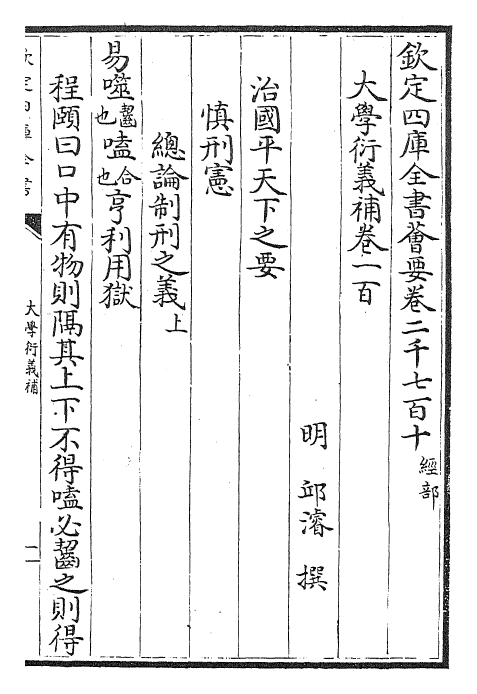 欽定四庫全書薈要卷二千七百十 經部
大學衍義補卷一百
明 邱濬 撰
治國平天下之要
慎刑憲
總論制刑之義上
易噬齧也嗑合也亨利用獄
程頤曰口中有物則隔其上下不得嗑必齧之則得
欽定四庫全書
大學衍義補
一